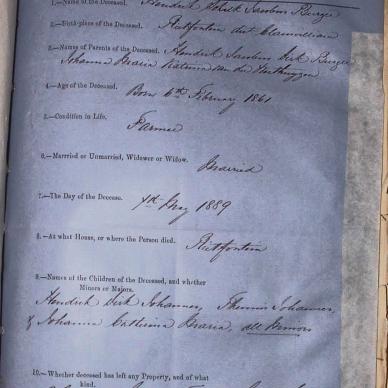 1.—Name of the Deceased. Hendrik Schalk Jacobus Burger
2.—Birth-place of the Deceased. Rietfontein dist Clanwilliam
3.—Names of Parents of the Deceased. Hendrik Jacobus Dirk Burger
Johanna Maria Katrina van der
4.—Age of the Deceased. Born 6th February 1861
5.—Condition in Life.
Farmer
6.—Married or Unmarried, Widower or Widow.
Married
7.—The Day of the Decease. May 1889
8.—At what House, or where the Person died. Rietfontein
9.—Names of the Children of the Deceased, and whether
Minors or Majors.
Hendrik Dirk Johannes, Johannes,
& Johanna Catherina Maria, all Minors
10.—Whether deceased has left any Property, and of what
kind.